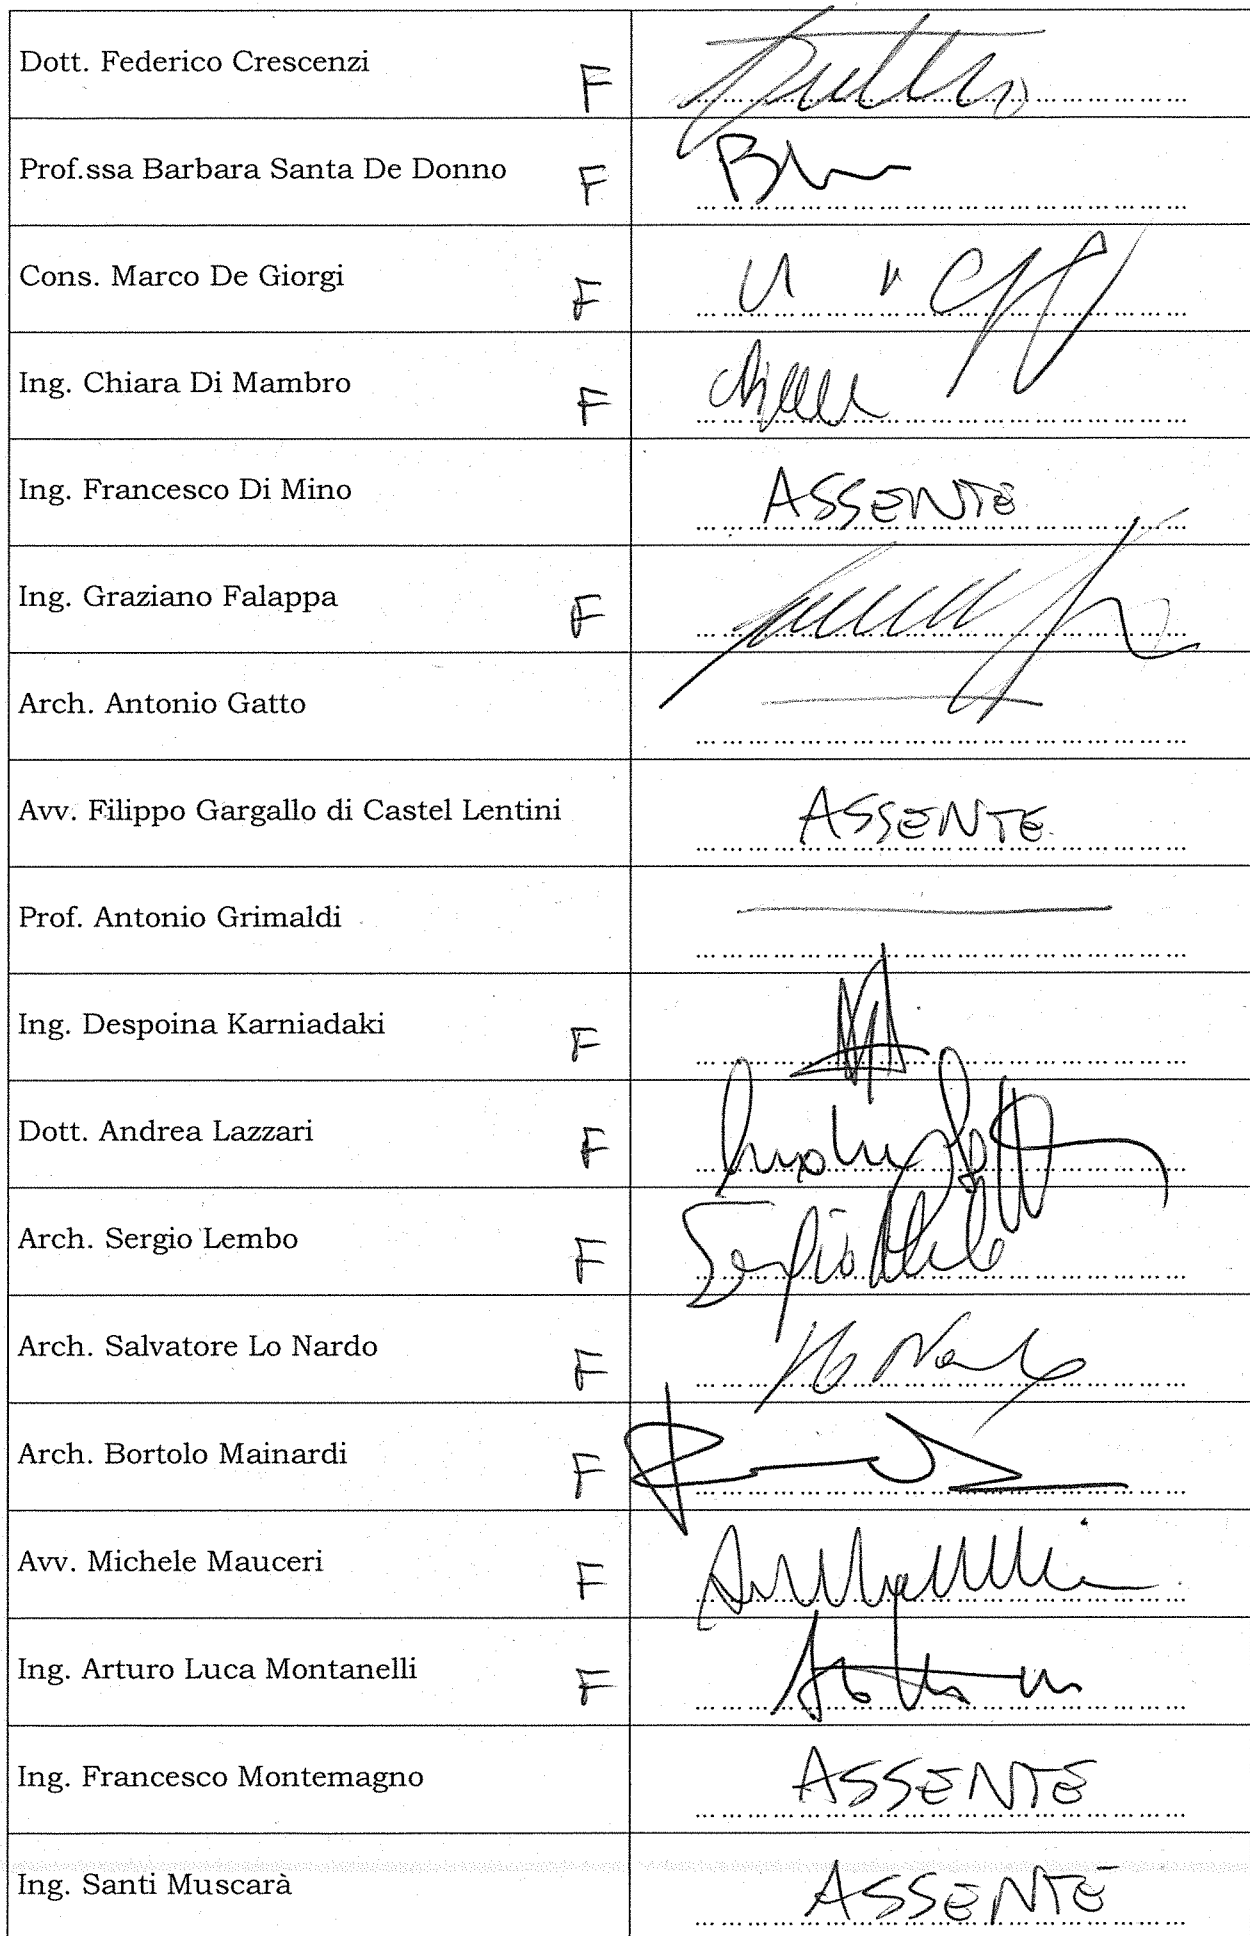 Dott. Federico Crescenzi F
Prof.ssa Barbara Santa De Donno F
Cons. Marco De Giorgi F
Ing. Chiara Di Mambro F
Ing. Francesco Di Mino ASSENTE
Ing. Graziano Falappa F
Arch. Antonio Gatto
Avv. Filippo Gargallo di Castel Lentini ASSENTE
Prof. Antonio Grimaldi
Ing. Despoina Karniadaki F
Dott. Andrea Lazzari F
Arch. Sergio Lembo F
Arch. Salvatore Lo Nardo F
Arch. Bortolo Mainardi F
Avv. Michele Mauceri F
Ing. Arturo Luca Montanelli F
Ing. Francesco Montemagno ASSENTE
Ing. Santi Muscarà ASSENTE